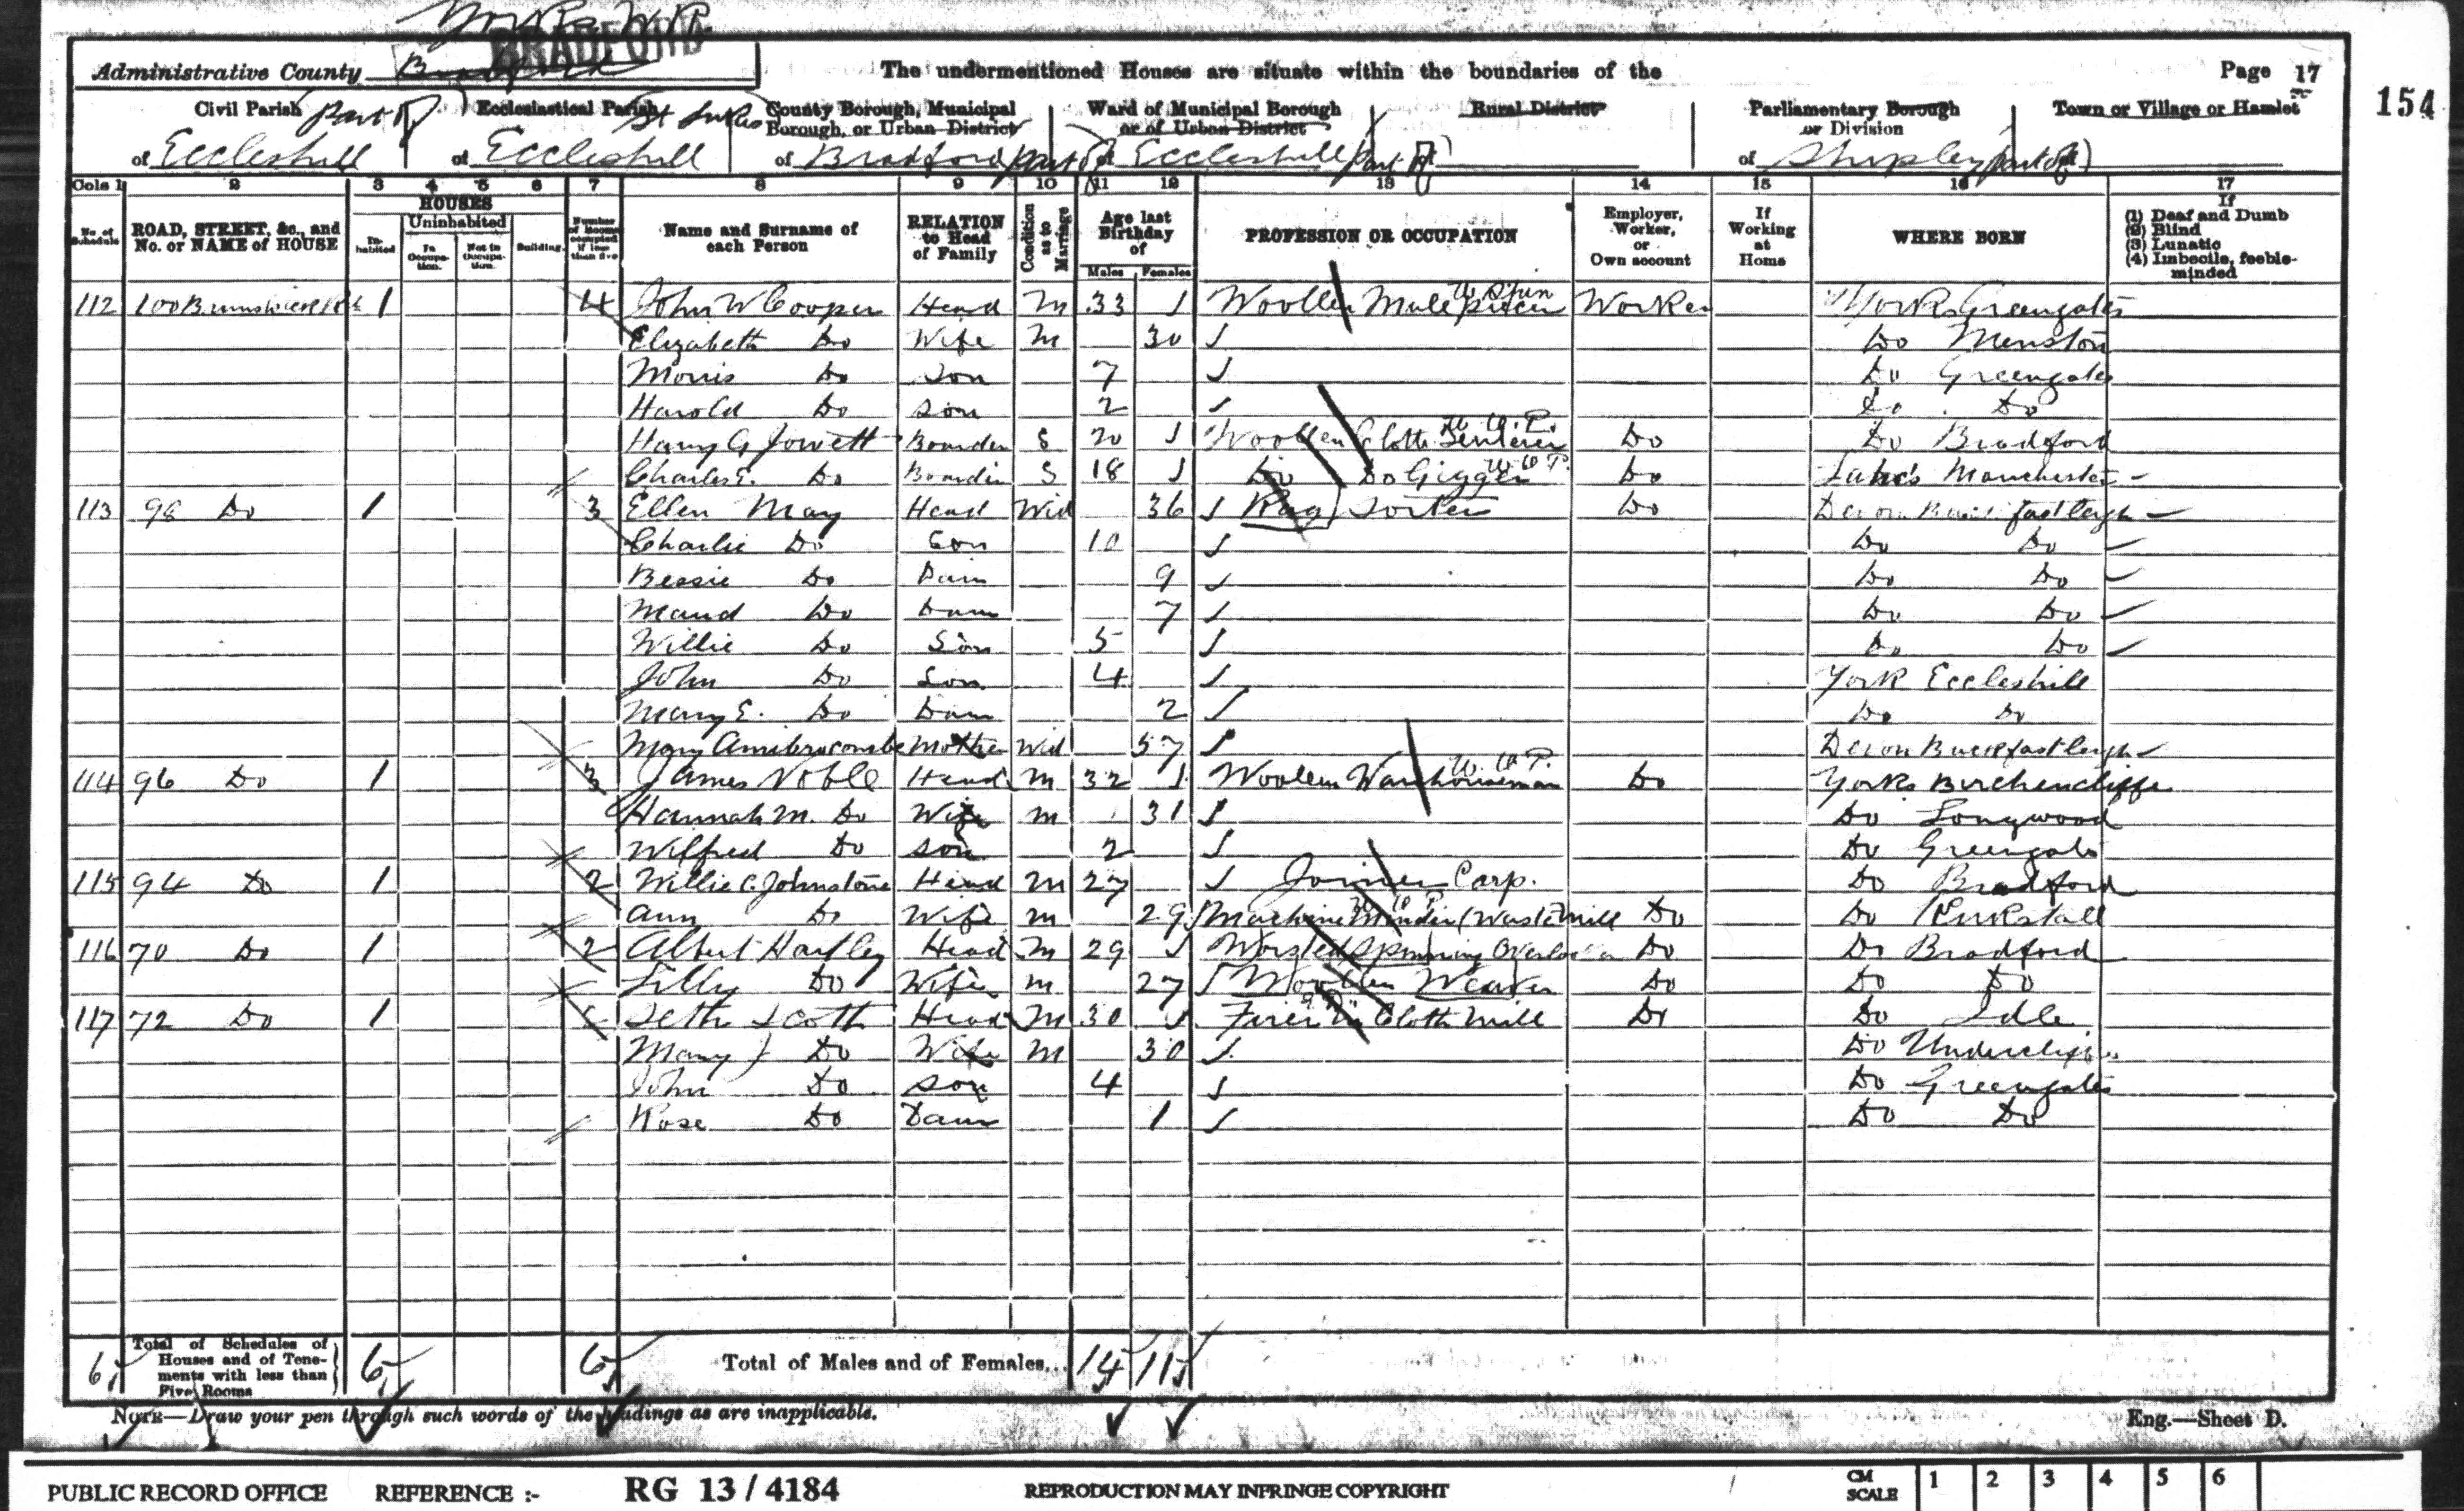 Yorks W.R.
BRADFORD
Administrative County
The undermentioned Houses are situate within the boundaries of the
Page 17
154
Civil Parish Part of
of Eccleshill
Ecclesiastical Parish St Lukes
of Eccleshill
County Borough, Municipal Borough, or Urban District
of Bradford (part of)
Ward of Municipal Borough or of Urban District
of Eccleshill (part of)
Rural District
Parliamentary Borough or Division
of Shipley (part of)
Town or Village or Hamlet
Cols 1 2 3 4 5 6 7 8 9 10 11 12 13 14 15 16 17
No. of Schedule
ROAD, STREET, &c., and No. or NAME of HOUSE
HOUSES
Inhabited
Uninhabited
In Occupation.
Not in Occupation.
Building
Number of Rooms occupied if less than five
Name and Surname of each Person
RELATION to Head of Family
Condition as to Marriage
Age last Birthday of
Males Females
PROFESSION OR OCCUPATION
Employer, Worker, or Own account
If Working at Home
WHERE BORN
If
(1) Deaf and Dumb
(2) Blind
(3) Lunatic
(4) Imbecile, feeble-minded
112 100 Brunswick Rd 1 4 John W Cooper Head M 33 Woollen Mule Piecer Worker Yorks Greengates
Elizabeth Do Wife M 30 Do Menston
Morris Do Son 7 Do Greengates
Harold Do Son 2 Do Do
Harry G Jowett Boarder S 20 Woollen Cloth Tenterer W.W.P. Do Do Bradford
Charles E. Do Boarder S 18 Do Do Gigger W.W.P. Do Lancs Manchester
113 98 Do 1 3 Ellen May Head Wid 36 Rag Sorter Do Devon Buckfastleigh
Charlie Do Son 10 Do Do
Bessie Do Daur 9 Do Do
Maud Do Daur 7 Do Do
Willie Do Son 5 Do Do
John Do Son 4 York Eccleshill
Mary E. Do Daur 2 Do Do
Mary Mother Wid 57 Devon Buckfastleigh
114 96 Do 1 3 James Noble Head M 32 Woollen Warehouseman W.W.P. Do Yorks Birchencliffe
Hannah M. Do Wife M 31 Do Longwood
Wilfred Do Son 2 Do Greengates
115 94 Do 1 2 Willie C. Johnstone Head M 27 Joiner Carp. Do Bradford
Ann Do Wife M 29 Machine Minder (Waste Mill Do Do Kirkstall
116 70 Do 1 2 Albert Hartley Head M 29 Worsted Spinning Overlooker Do Do Bradford
Lilly Do Wife M 27 Woollen Weaver Do Do Do
117 72 Do 1 Seth Scott Head M 30 Firer in Cloth Mill Do Do Idle
Mary J Do Wife M 30 Do Undercliffe
John Do Son 4 Do Greengates
Rose Do Daur 1 Do Do
6 Total of Schedules of Houses and of Tenements with less than Five Rooms 6 6 Total of Males and of Females... 14 11
NOTE—Draw your pen through such words of the headings as are inapplicable.
Eng.—Sheet D.
PUBLIC RECORD OFFICE REFERENCE :- RG 13 / 4184 REPRODUCTION MAY INFRINGE COPYRIGHT CM SCALE 1 2 3 4 5 6